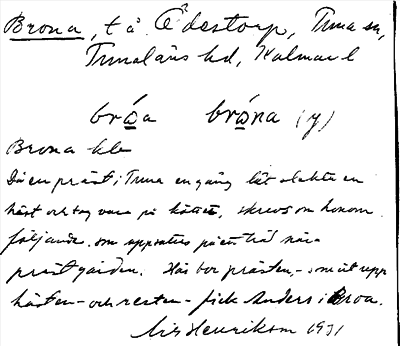 Brona, t å Ödestorp, Tuna sn,
Tunaläns hd, Kalmar l
bråa bråna (y)
Brona kle
Då en präst i Tuna en gång lät slakta en
häst och tog vara på köttet, skrevs om honom
följande, som uppsattes på ett träd nära
prästgården. Här bor prästen, - som åt upp
hästen - och resten - fick Anders i Broa.
Nils Henrikson 1931